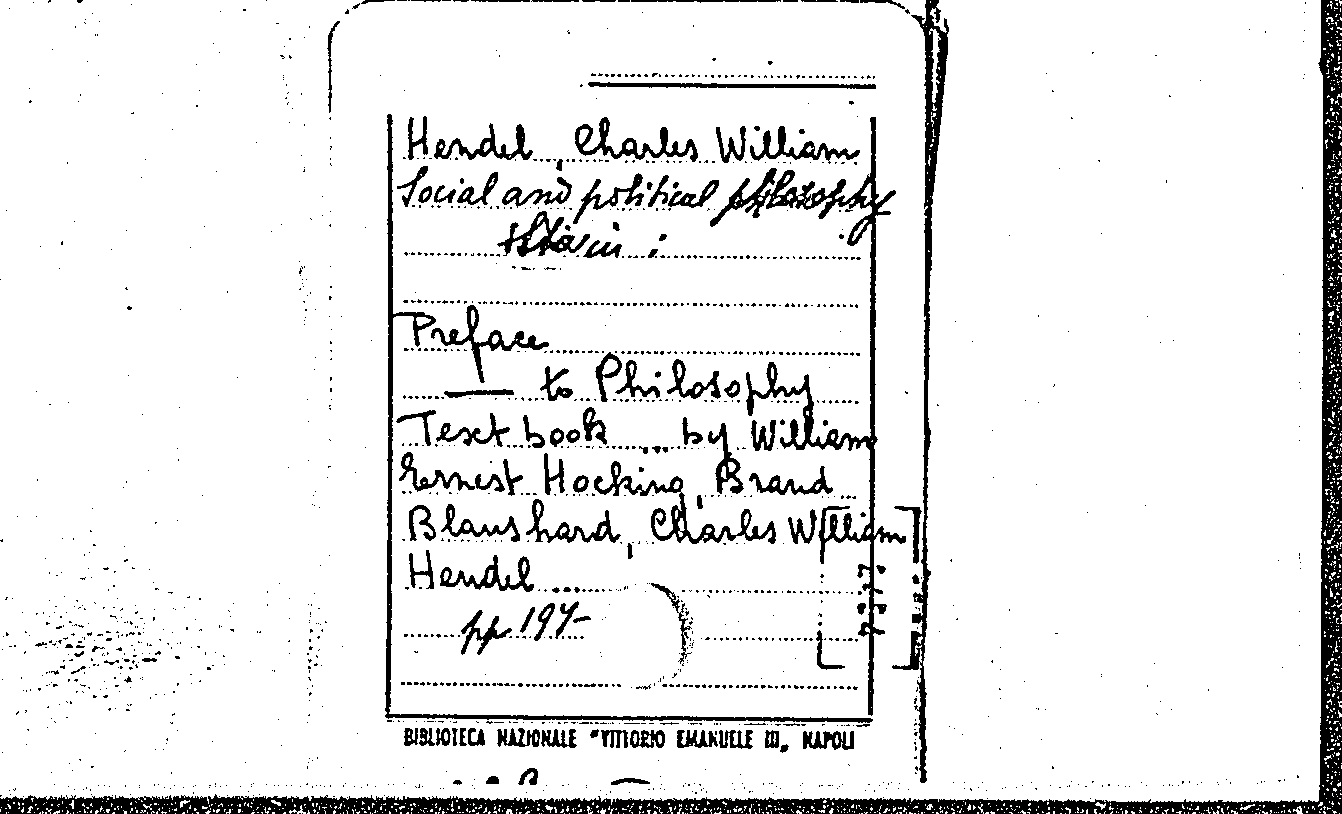 Hendel, Charles William
Social and political philosophy
:
Preface
— to Philosophy
Text book ... by William
Ernest Hocking, Brand
Blanshard, Charles William
Hendel ...
pp 197-
BIBLIOTECA NAZIONALE "VITTORIO EMANUELE III„ NAPOLI